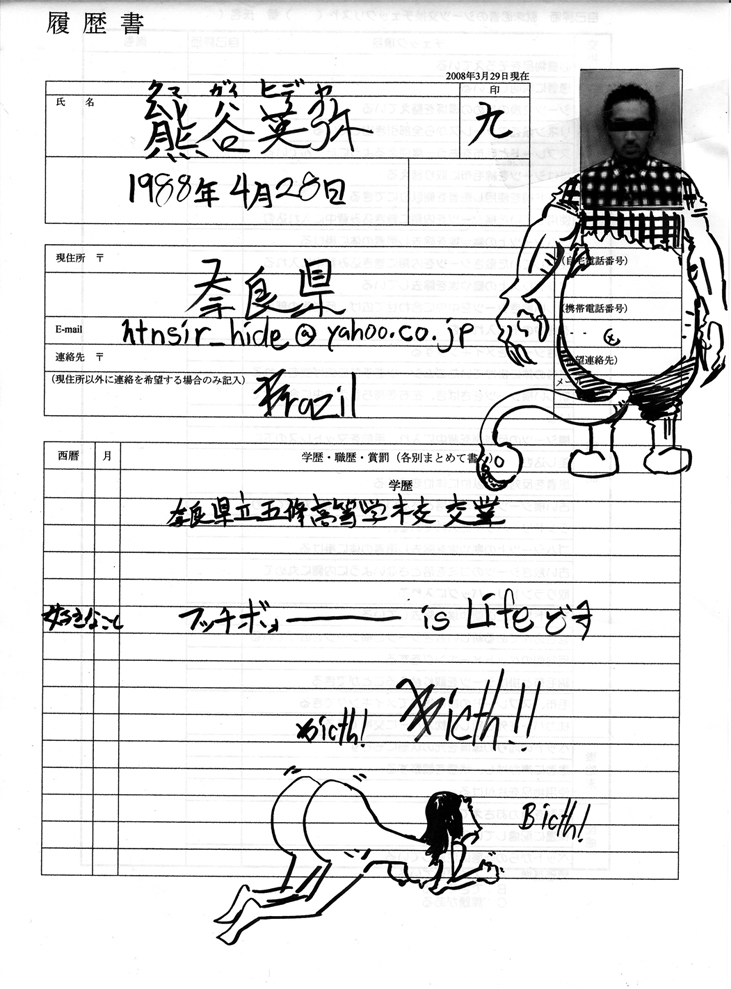 履歴書
2008年3月29日現在
クマ ガイ ヒデ ヤ
氏 名
印
熊谷英弥
九
1988年4月28日
現住所 〒
(自宅電話番号)
奈良県
(携帯電話番号)
E-mail
htnsir_hide@yahoo.co.jp
連絡先 〒
望連絡先)
(現住所以外に連絡を希望する場合のみ記入)
メール
Brazil
西暦
月
学歴・職歴・賞罰 (各別まとめて書
学歴
奈良県立五條高等学校 卒業
好きなこと
フッチボォ――― is Life どす
Bicth!
Bicth!!
Bicth!